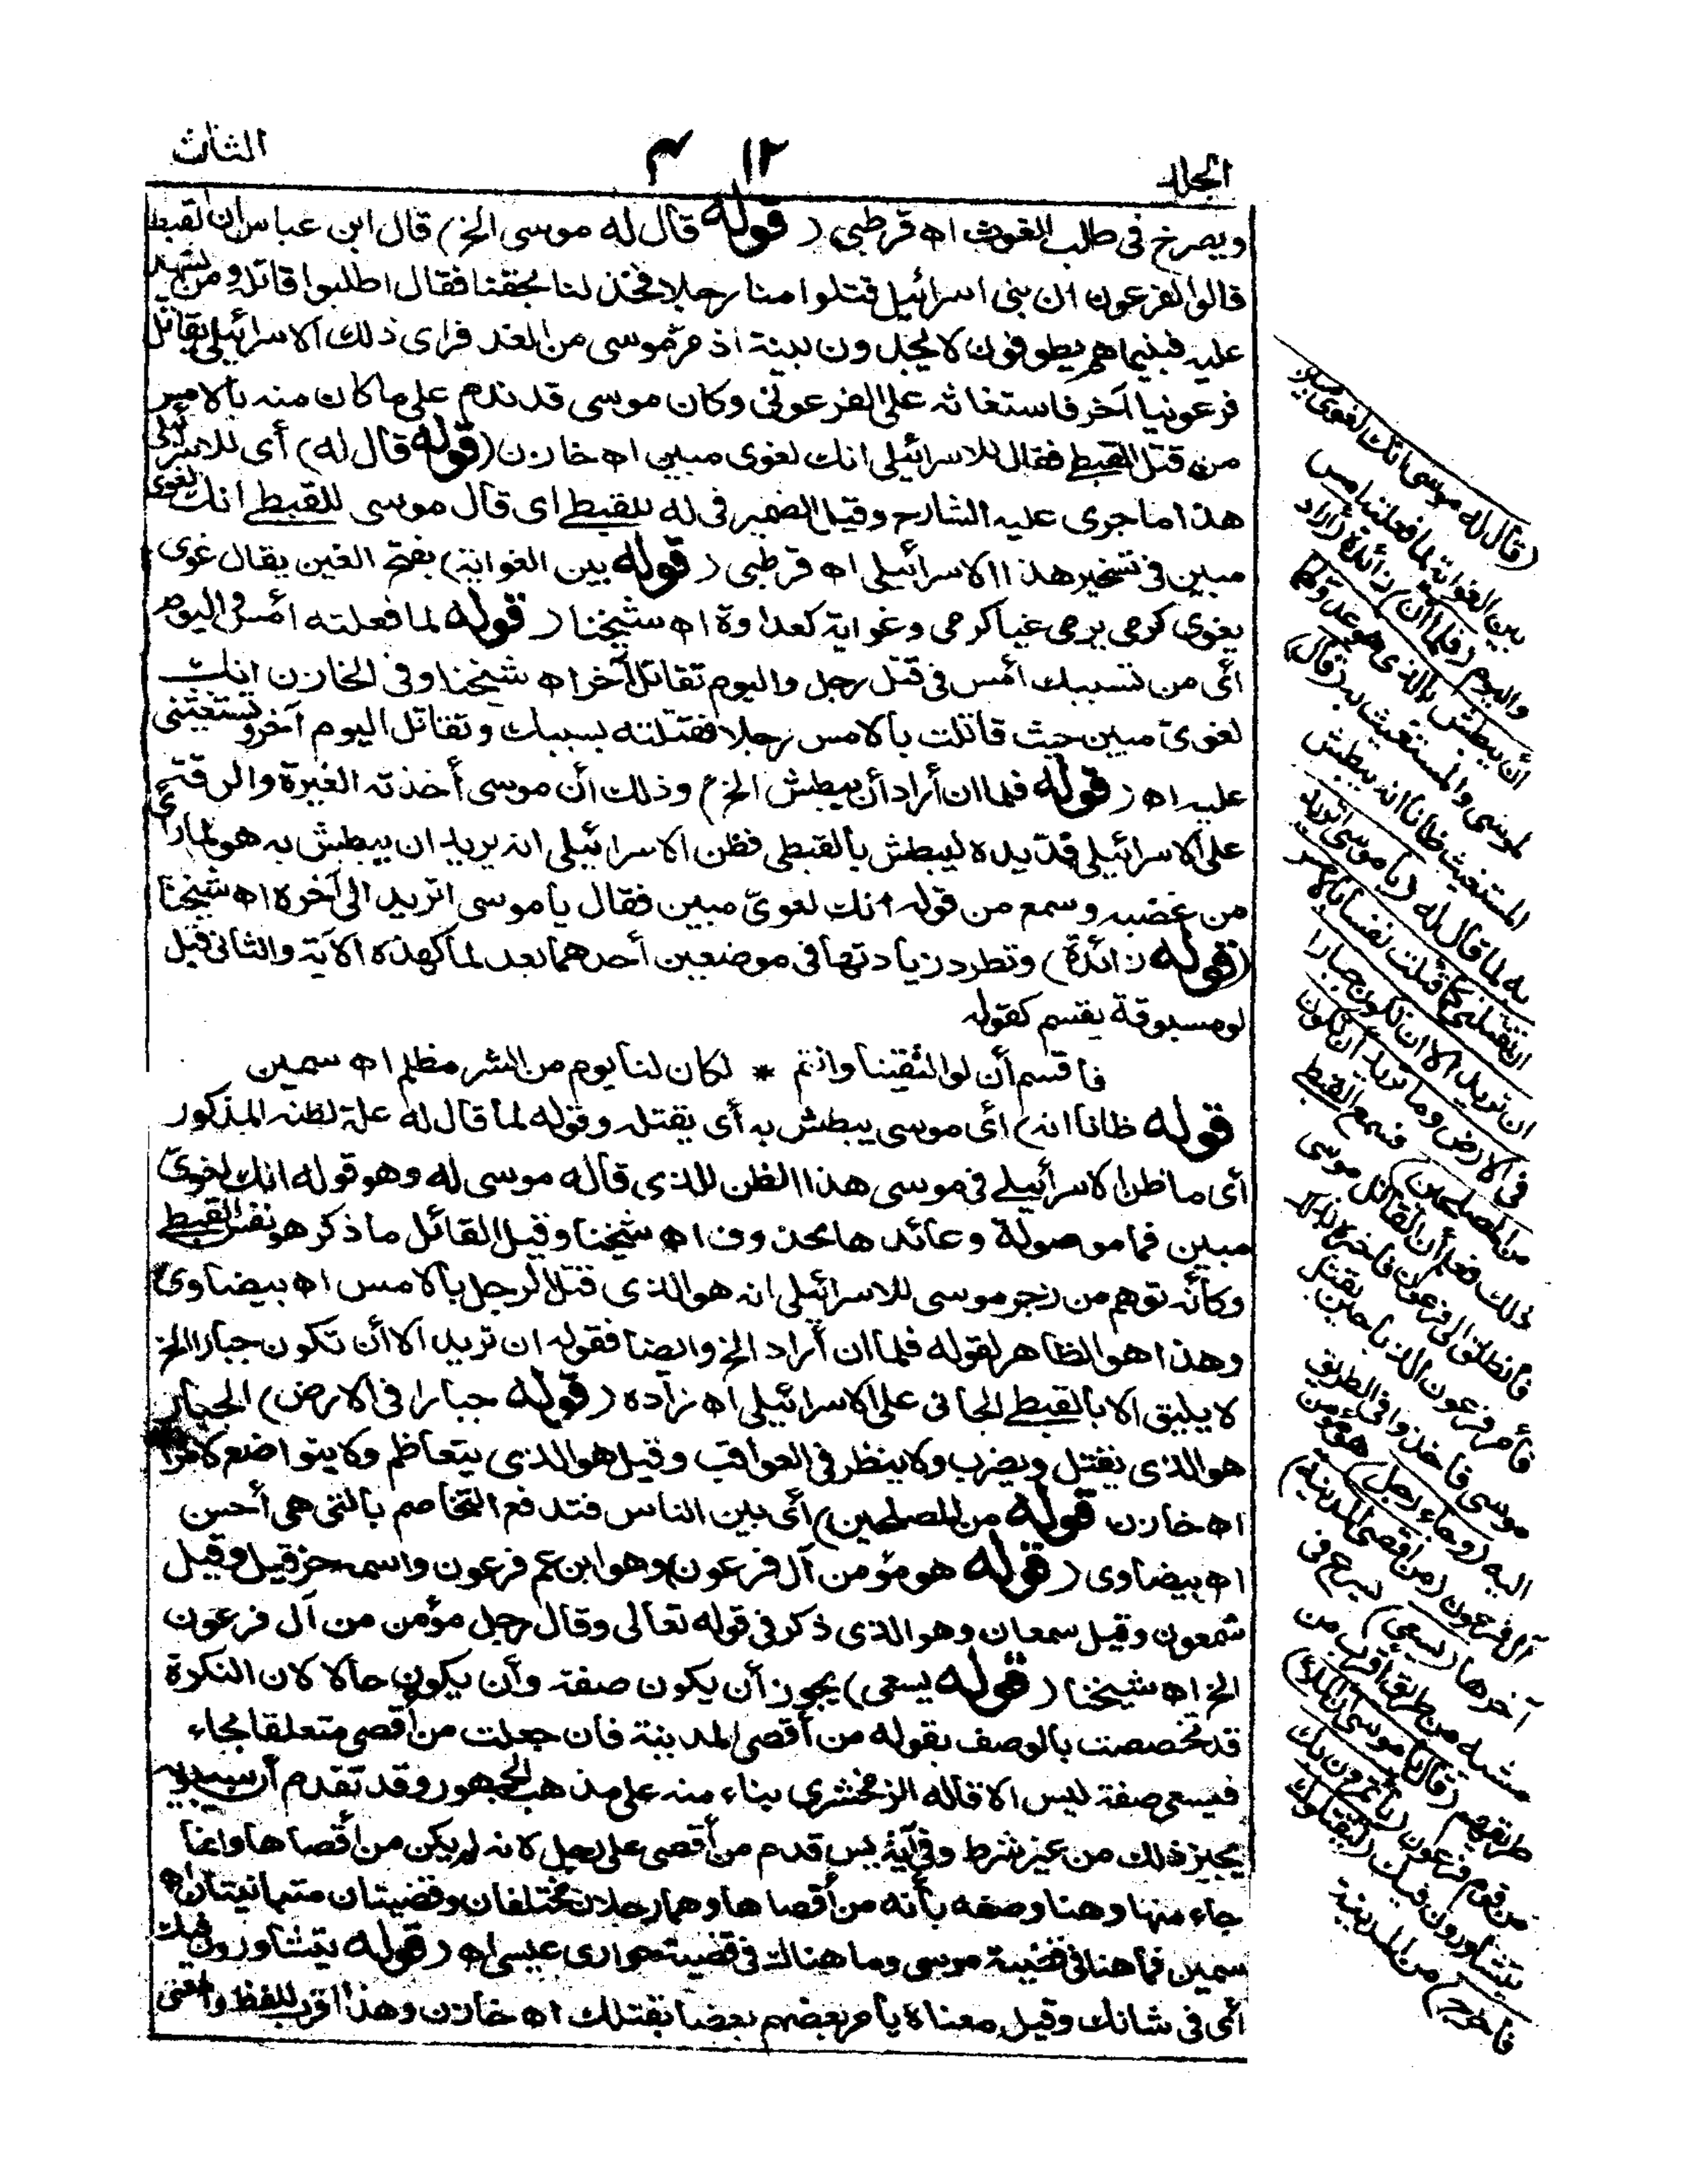 الجلد ٣١٢ الثالث
ويصرخ فى طلب الغوث اه قرطبى (قوله قال له موسى الخ) قال ابن عباس ان القبط
قالوا لفرعون ان بنى اسرائيل قتلوا منا رجلا فخذ لنا بحقنا فقال اطلبوا قاتله ومن يشهد
عليه فبينما هم يطوفون لا يجدون بينة اذ مرّ موسى من الغد فراى ذلك الاسرائيلى يقاتل
فرعونيا آخر فاستغاثه على الفرعونى وكان موسى قد ندم على ما كان منه بالامس
من قتل القبطے فقال للاسرائيلى انك لغوى مبين اه خازن (قوله قال له) أى للاسرائيلى
هذا ما جرى عليه الشارح وقيل الضمير فى له للقبطے اى قال موسى للقبطے انك لغوى
مبين فى تسخير هذا الاسرائيلى اه قرطبى (قوله بين الغواية) بفتح الغين يقال غوى
يغوى كرمى يرمى غيا كرمى وغواية كعداوة اه شيخنا (قوله لما فعلته أمس واليوم
أى من تسببك أمس فى قتل رجل واليوم تقاتل آخر اه شيخنا وفى الخازن انك
لغوىّ مبين حيث قاتلت بالامس رجلا فقتلته بسببك وتقاتل اليوم آخر وتستغيثنى
عليه اه (قوله فلما ان أراد أن يبطش الخ) وذلك أن موسى أخذته الغيرة والرقة
على الاسرائيلى فمدّ يده ليبطش بالقبطى فظن الاسرائيلى انه يريد ان يبطش به هو لما رأى
من غضبه وسمع من قوله انك لغوىّ مبين فقال يا موسى اتريد الى آخره اه شيخنا
(قوله زائدة) وتطرد زيادتها فى موضعين أحدهما بعد لما كهذه الآية والثانى قبل
لو مسبوقة بقسم كقوله
فاقسم أن لو التقينا وانتم * لكان لنا يوم من الشر مظلم اه سمين
قوله ظانا انه) أى موسى يبطش به أى يقتله وقوله لما قال له علة لظنه المذكور
أى ما ظن الاسرائيلے فى موسى هذا الظن للذى قاله موسى له وهو قوله انك لغوىّ
مبين فما موصولة وعائدها محذوف اه شيخنا وقيل القائل ما ذكر هو نفس القبطے
وكأنه توهم من زجر موسى للاسرائيلى انه هو الذى قتل الرجل بالامس اه بيضاوى
وهذا هو الظاهر لقوله فلما ان أراد الخ وايضا فقوله ان تريد الا أن تكون جبارا الخ
لا يليق الا بالقبطے الجانى على الاسرائيلى اه زاده (قوله جبارا فى الارض) الجبار
هو الذى يقتل ويضرب ولا ينظر فى العواقب وقيل هو الذى يتعاظم ولا يتواضع لامر
اه خازن قوله من المصلحين) أى بين الناس فتدفع التخاصم بالتى هى أحسن
اه بيضاوى (قوله هو مؤمن آل فرعون) وهو ابن عم فرعون واسمه حزقيل وقيل
شمعون وقيل سمعان وهو الذى ذكر فى قوله تعالى وقال رجل مؤمن من آل فرعون
الخ اه شيخنا (قوله يسعى) يجوز أن يكون صفة وأن يكون حالا لان النكرة
قد تخصصت بالوصف بقوله من أقصى المدينة فان جعلت من أقصى متعلقا بجاء
فيسعى صفة ليس الا قاله الزمخشرى بناء منه على مذهب الجمهور وقد تقدم أن سيبويه
يجيز ذلك من غير شرط وفى آية يس قدم من أقصى على رجل لانه لم يكن من أقصاها وانما
جاء منها وهنا وصفه بأنه من أقصاها وهما رجلان مختلفان وقضيتان متباينتان اه
سمين فما هنا فى قضية موسى وما هنالك فى قضية حوارى عيسى اه (قوله يتشاورون فيك
أى فى شانك وقيل معناه يأمر بعضهم بعضا بقتلك اه خازن وهذا اقرب للفظ والمعنى
(قال له موسى انك لغوى مبين)
بين الغواية لما فعلته امس
واليوم (فلما أن) زائدة (أراد
أن يبطش بالذى هو عدو لهما)
لموسى والمستغيث به (قال)
المستغيث ظانا انه يبطش
به لما قال له (يا موسى اتريد
ان تقتلنى كما قتلت نفسا بالامس
ان تريد الا ان تكون جبارا
فى الارض وما تريد ان تكون
من المصلحين) فسمع القبطے
ذلك فعلم أن القاتل موسى
فانطلق الى فرعون فاخبره بذلك
فأمر فرعون الذباحين بقتل
موسى فاخذوا فى الطريق
اليه (وجاء رجل) هو مؤمن
آل فرعون (من اقصى المدينة)
آخرها (يسعى) يسرع فى
مشيه من طريق أقرب من
طريقهم (قال يا موسى ان الملأ)
من قوم فرعون (يأتمرون بك)
يتشاورون فيك (ليقتلوك
فاخرج) من المدينة